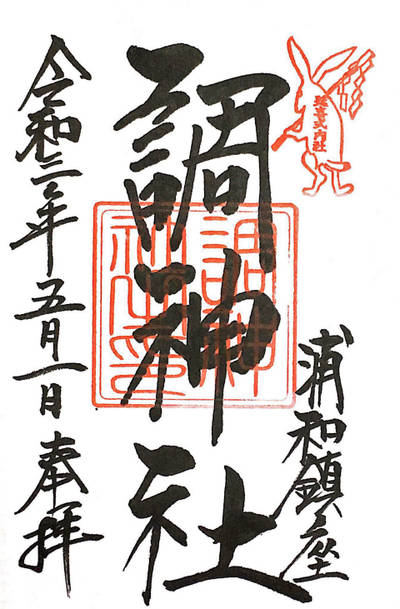 延喜式内社
浦和鎮座
調神社
調神
社之印
令和三年五月一日 奉拝